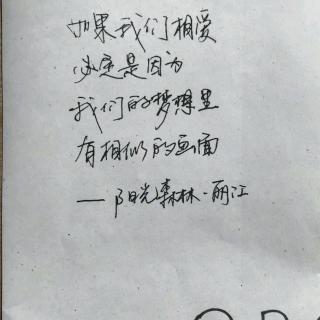 如果我们相爱
必定是因为
我们的梦想里
有相似的画面
——阳光森林·丽江